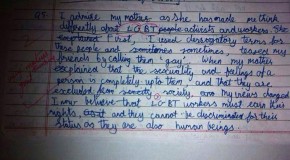 Q3. I admire my mother as she has made me think
differently about LGBT people activists and workers. She
explained that I used derogatory terms for
these people and sometimes sometimes, teased my
friends by calling them 'gay'. When my mother
explained that the sexuality and feelings of a
person is completely upto them, and that they are
excluded from society society. My views changed
I now believe that LGBT workers must earn their
rights, and they cannot be discriminated for their
status as they are also human beings.